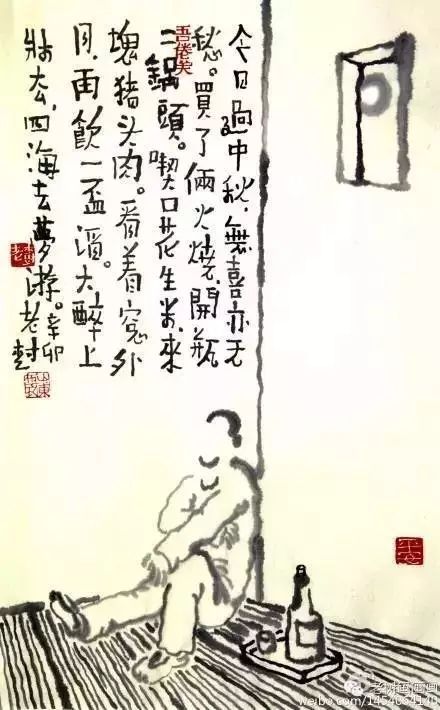 今日過中秋,無喜亦无
愁。買了倆火燒,開瓶
二鍋頭。喫口花生米,來
塊猪头肉。看着窓外
月,再飲一盃酒。大醉上
牀去,四海去夢游。辛卯
老樹
吾倦矣
老樹
平安
老树画画